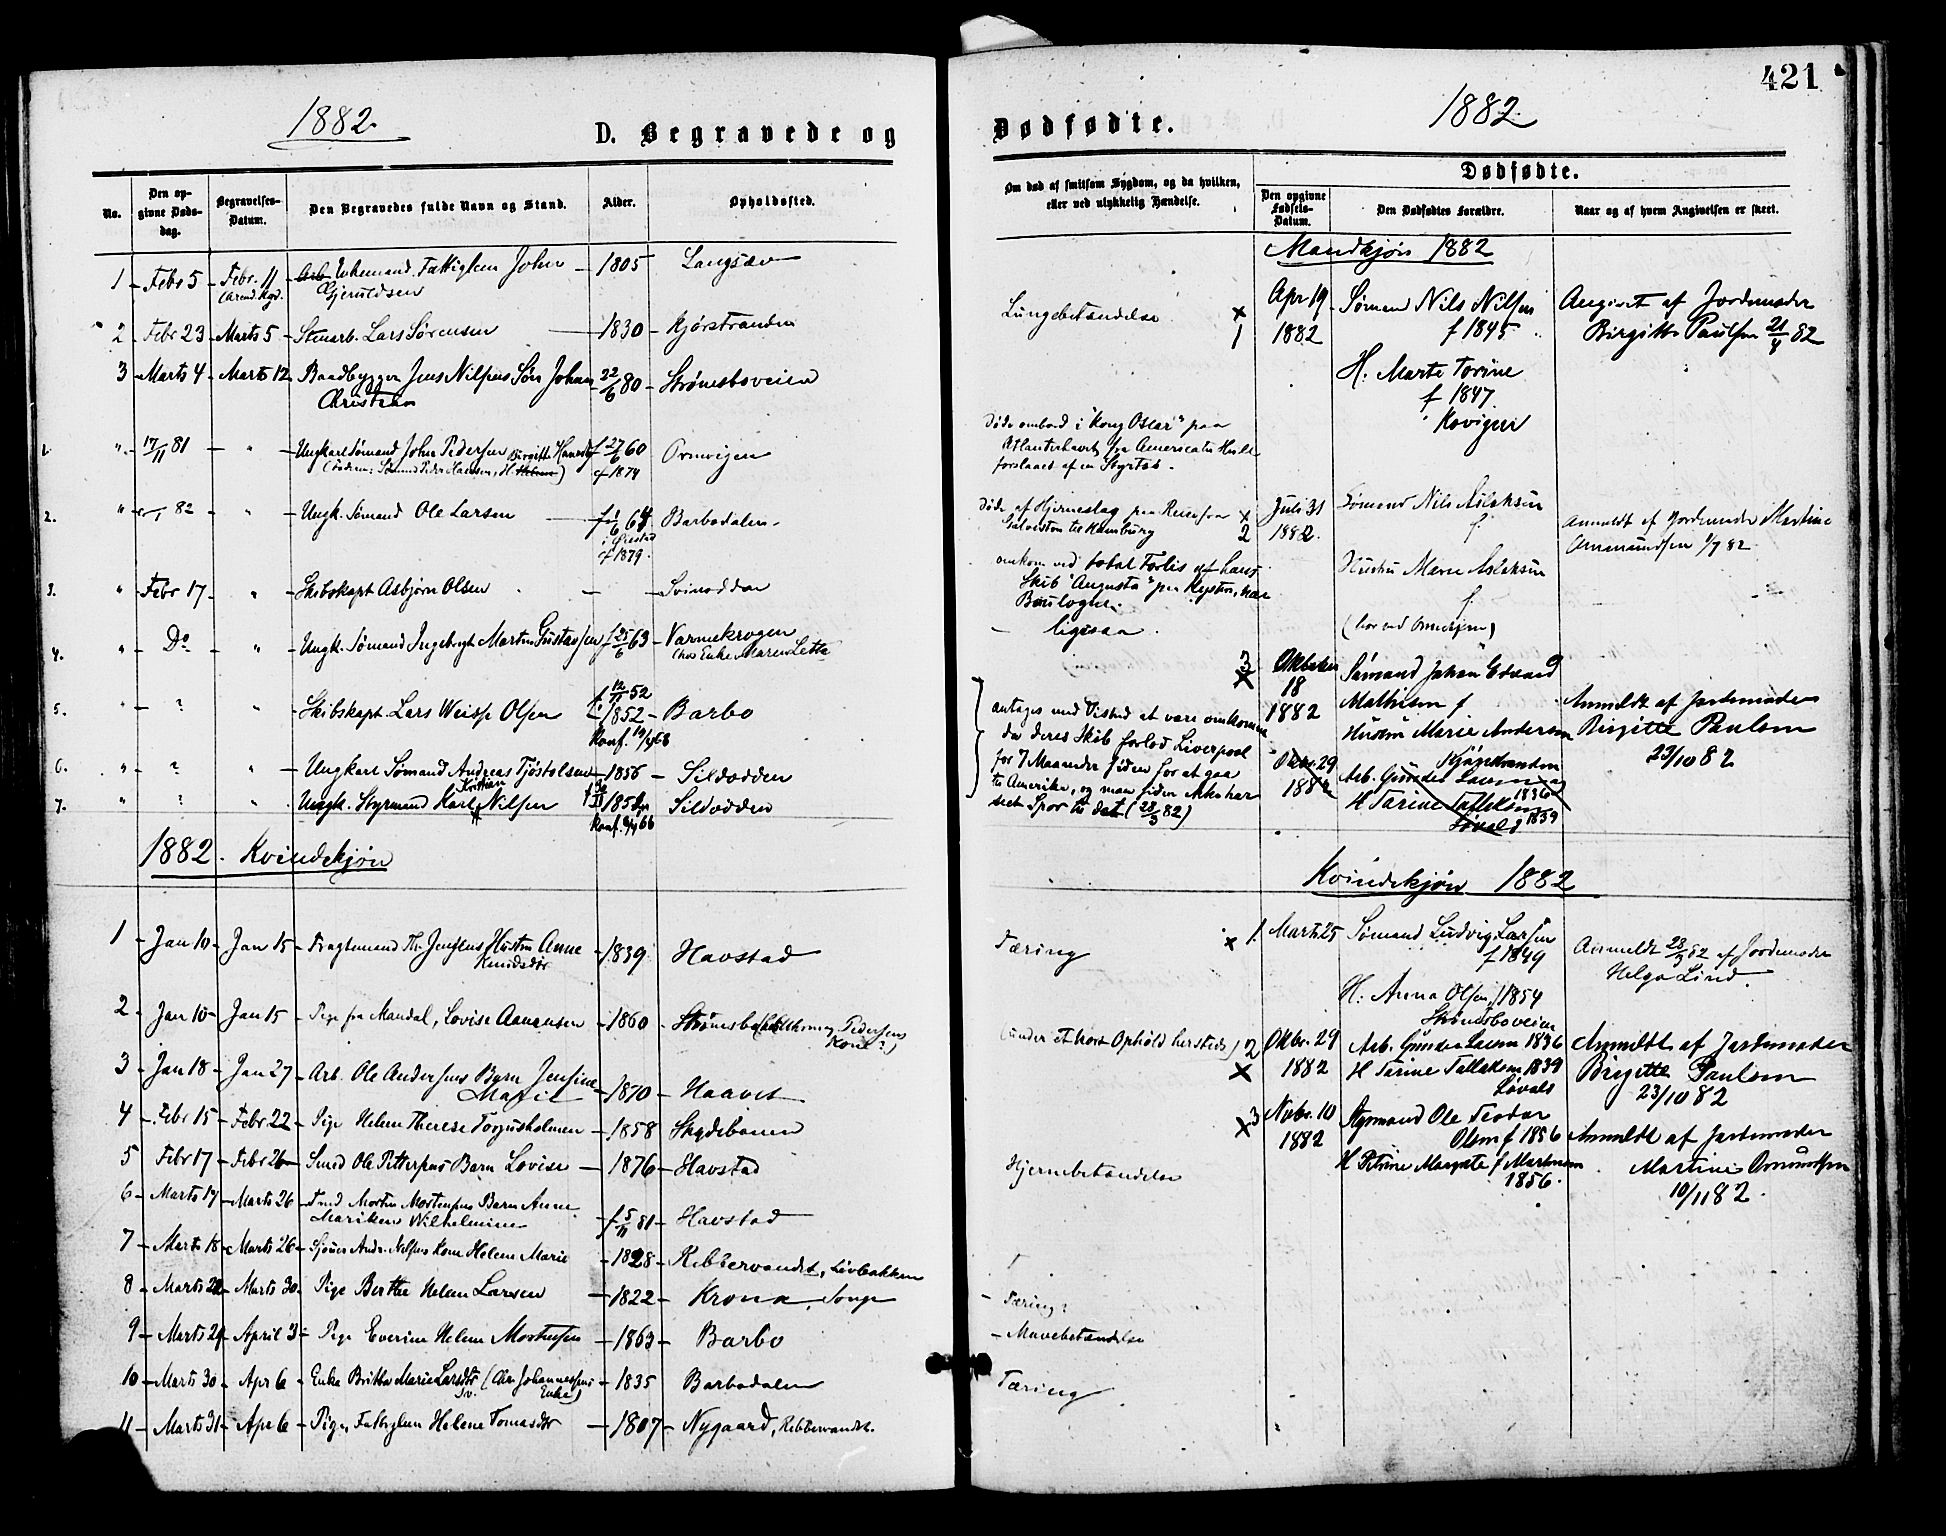 421
1882.
D. Begravede og
No.
Den opgivne Døds-dag.
Begravelses-Datum.
Den Begravedes fulde Navn og Stand.
Alder.
Opholdssted.
1 – Febr 5 – Febr. 11 – Enkemand. Fattiglem John – 1805 Langsæv
(Arend. Kgd.
Gjeruldsen
2 – Febr 23 – Marts 5 – Stenarb. Lars Sørensen – 1830 –
3 – Marts 4 – Marts 12 – Baadbygger Jens Nilsens Søn Johan 22/6 80 – Strømsboveien
Christian
1. " 17/11 81 – " – Ungkarl Sømand John Pedersen f 27/6 60 Ormvigen
f 1874
2. " 82 " – Ungk. Sømand Ole Larsen – f 1/6 64 Barbodalen
f 1879.
3. " – Febr 17 – " – Skibskapt Asbjørn Olsen – – Svinodden
4. " – Do – " – Ungk. Sømand Ingebregt Martin Gustavsen f 25/6 63 – Varmekrogen
(hos Enke Maren Letta
5. " – ? " – Skibskapt. Lars Weisse Olsen 1852 – Barbo
Konf.
6. " ? " – Ungkarl Sømand Andreas Tjøstolsen – 1856 – Sildodden
Kristian
7. " ? " Ungk. Styrmand Karl Nilsen Sildodden
1882. Kvindekjøn
1 – Jan 10 – Jan 15 – Fragtemand Th. Jensens Hustru Anne – 1839 – Havstad
Knudsdtr
2 – Jan 10 – Jan 15 – Pige fra Mandal, Lovise Aanensen – 1860 – Strømsbo
3 – Jan 18 – Jan 27 – Arb. Ole Andersens Barn Jensine – 1870 – Haavet
Marie
4 – Febr 15 – Febr 22 – Pige Helene Therese Torjusholmen – 1858 – Skydebanen
5 – Febr 17 – Febr 26 – Smed Ole Pettersens Barn Lovise – 1876 – Havstad
6 – Marts 17 – Marts 26 – Morten Mortensens Barn Anne
Wilhelmine – f 5/11 81 – Havstad
7 – Marts 18 – Marts 26 – Andr. Nilsens Kone Helene Marie – 1828 – Ribbervandet, Løvbakken
8 – Marts 22 – Marts 30 – Pige Berthe Helene Larsen – 1822 – Krona, Songe
9 – Marts 29 – April 3 – Pige Everine Helene Mortensen – 1863 – Barbo
10 – Marts 30 – Apr 6 – Enke Britta Marie Larsdtr (Chr. Johannessens – 1835 – Barbodalen
Enke)
11 – Marts 31 – Apr 6 – Pige, Fattiglem Helene Tomasdtr – 1807 – Nygaard, Ribbervandet.
Dødfødte.
1882.
Om død af smitsom Sygdom, og da hvilken, eller ved ulykkelig Hændelse.
Dødfødte.
Den opgivne Fødsels-Datum.
Den Dødfødtes Forældre.
Naar og af hvem Angivelsen er skeet.
Mandkjøn 1882
Lungebetændelse
x 1 Apr 19 1882
Sømand Nils Nilsen
f 1845
H. Marte Torine
f 1847
Kovigen
Angivet af Jordemoder
Birgitte Paulsen 21/4 82
Døde ombord i "Kong Oscar" paa
Atlanterhavet fra America til Hull
forslaaet af en Styrtsø.
Døde af Hjerneslag paa Reise fra
Galveston til Hamburg
x 2 Juli 31 1882.
Sømand Nils Aslaksen
f
Hustru Marie Aslaksen
f.
Anmeldt af Jordemoder Martine
Ommundsen 1/7 82
omkom ved total Forlis af
Skib "Augusta" paa Kysten, nær
Boulogne.
– ligesaa.
3 x Oktober 18 1882
Sømand Johan Edvard
Mathisen f
Hustru Marie Andersen
Anmeldt af Jordemoder
Birgitte Paulsen
23/10 82
antages med Visshed at være omkomne
da deres Skib forlod Liverpool
for 7 Maaneder siden for at gaa
til Amerika, og man siden ikke har
seet Spor til det (28/3 82)
Oktbr. 29 1882
Arb. Gunder Larsen 1836
H Tarine Tallaksen 1839
Løvold
Kvindekjøn 1882
Tæring
x 1. Marts 25
Sømand Ludvig Larsen
f 1849
H. Anna Olsen f 1854
Strømsboveien
Anmeldt 28/3 82 af Jordemoder
Helga Lind.
(under et kort Ophold hersteds)
2 x Oktbr. 29 1882
Arb. Gunder Larsen 1836
H Tarine Tallaksen 1839
Løvold
Anmeldt af Jordemoder
Birgitte Paulsen
23/10 82
x 3 Novbr. 10 1882
Styrmand Ole Teodor
Olsen f 1856
1856.
Anmeldt af Jordemoder
Martine Ommundsen
10/11 82.
Hjernebetændelse
– Tæring?
– Mavebetændelse
Tæring